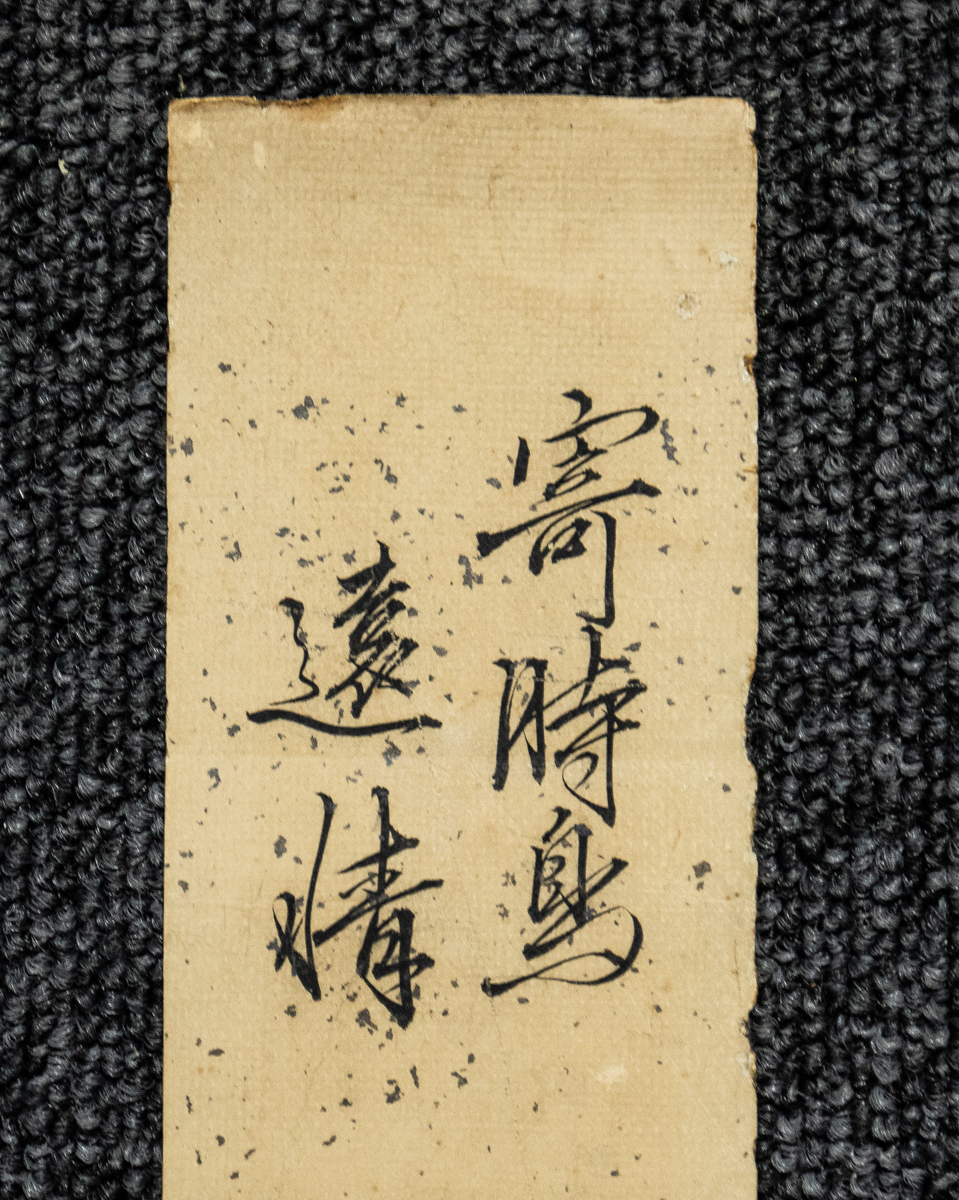 寄時鳥
遠情